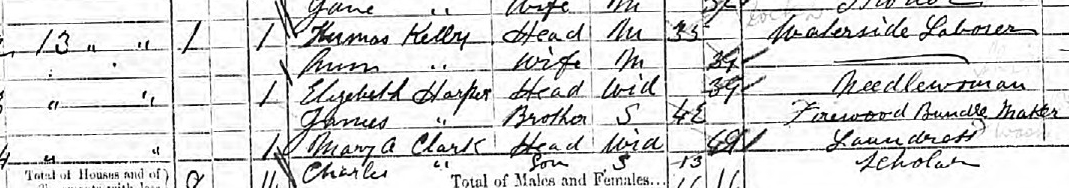 Jane " Wife M
13 " " 1 1 Thomas Kelly Head M 35 Waterside Laborer
" " Ann " Wife M 39
" " 1 Elizabeth Harper Head Wid 39 Needlewoman
James " Brother S 42 Firewood Bundle Maker
4 " " 1 Mary A Clark Head Wid 49 Laundress
Charles " Son S 13 Scholar
Total of Houses and of 9 11 Total of Males and Females...